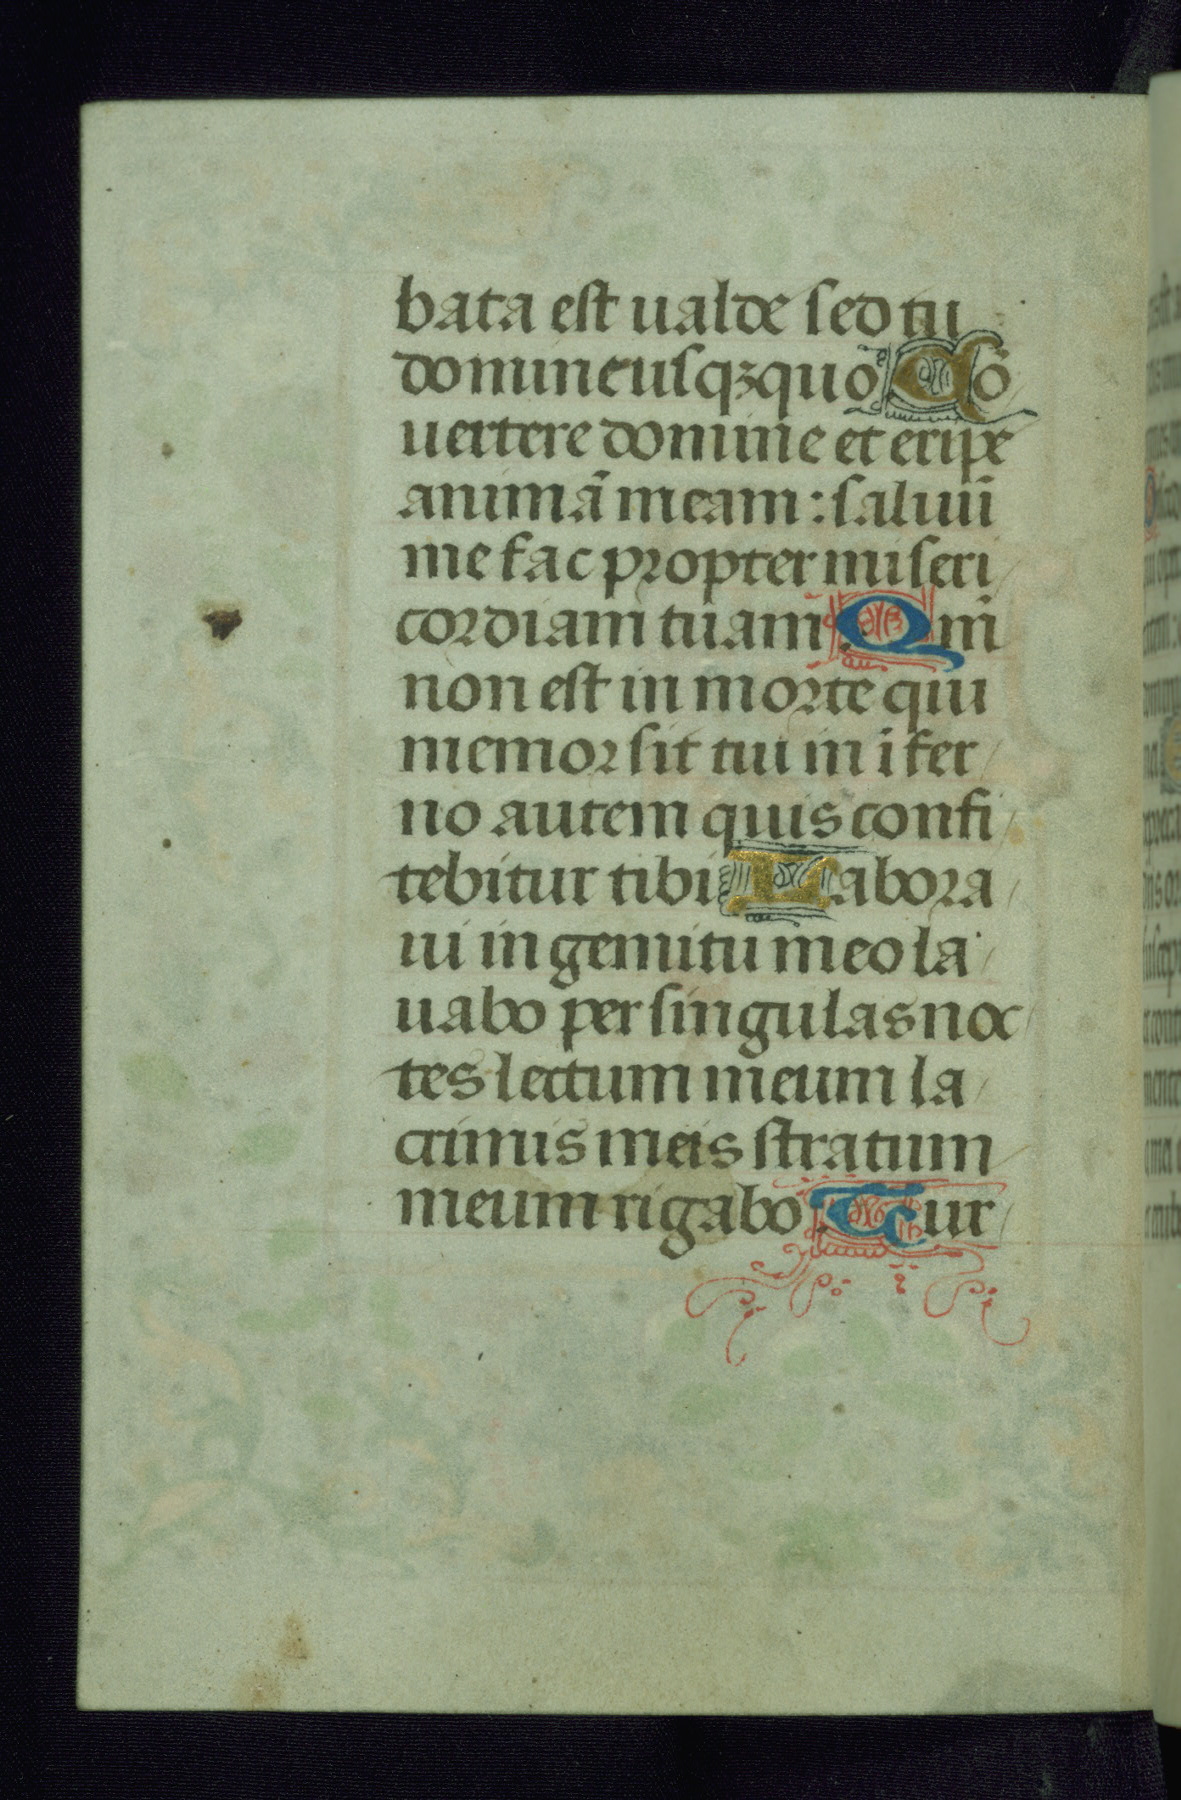 bata est ualde sed tu
domine usqꝫ quo Cō
uertere domine et eripe
animā meam : saluū
me fac propter miseri
cordiam tuam Qm̄
non est in morte qui
memor sit tui in ī fer
no autem quis confi
tebitur tibi Labora
ui in gemitu meo la
uabo per singulas noc
tes lectum meum la
crimis meis stratum
meum rigabo Tur